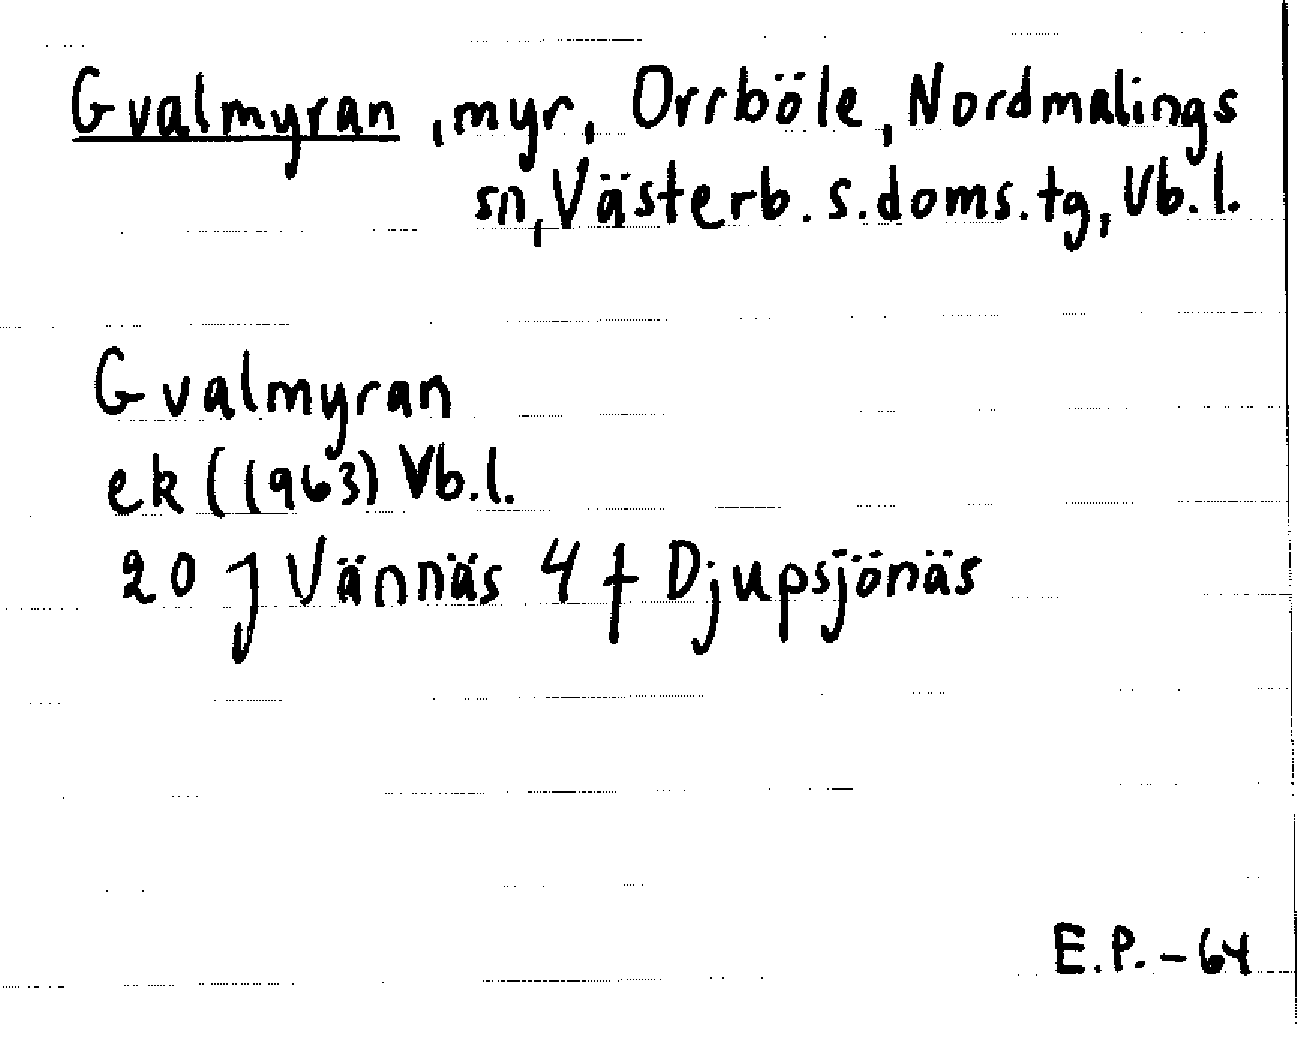 Gvalmyran, myr, Orrböle, Nordmalings
sn, Västerb. s. doms. tg, Vb. l.
Gvalmyran
ek (1963) Vb. l.
20 J Vännäs 4 f Djupsjönäs
E.P. - 64